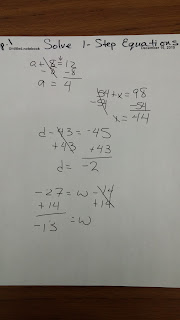 Solve 1-Step Equations
Untitled.notebook
December 15, 2015
a + 8 = 12
-8 -8
a = 4
54 + x = 98
-54 -54
x = 44
d - 43 = -45
+43 +43
d = -2
-27 = w - 14
+14 +14
-13 = w